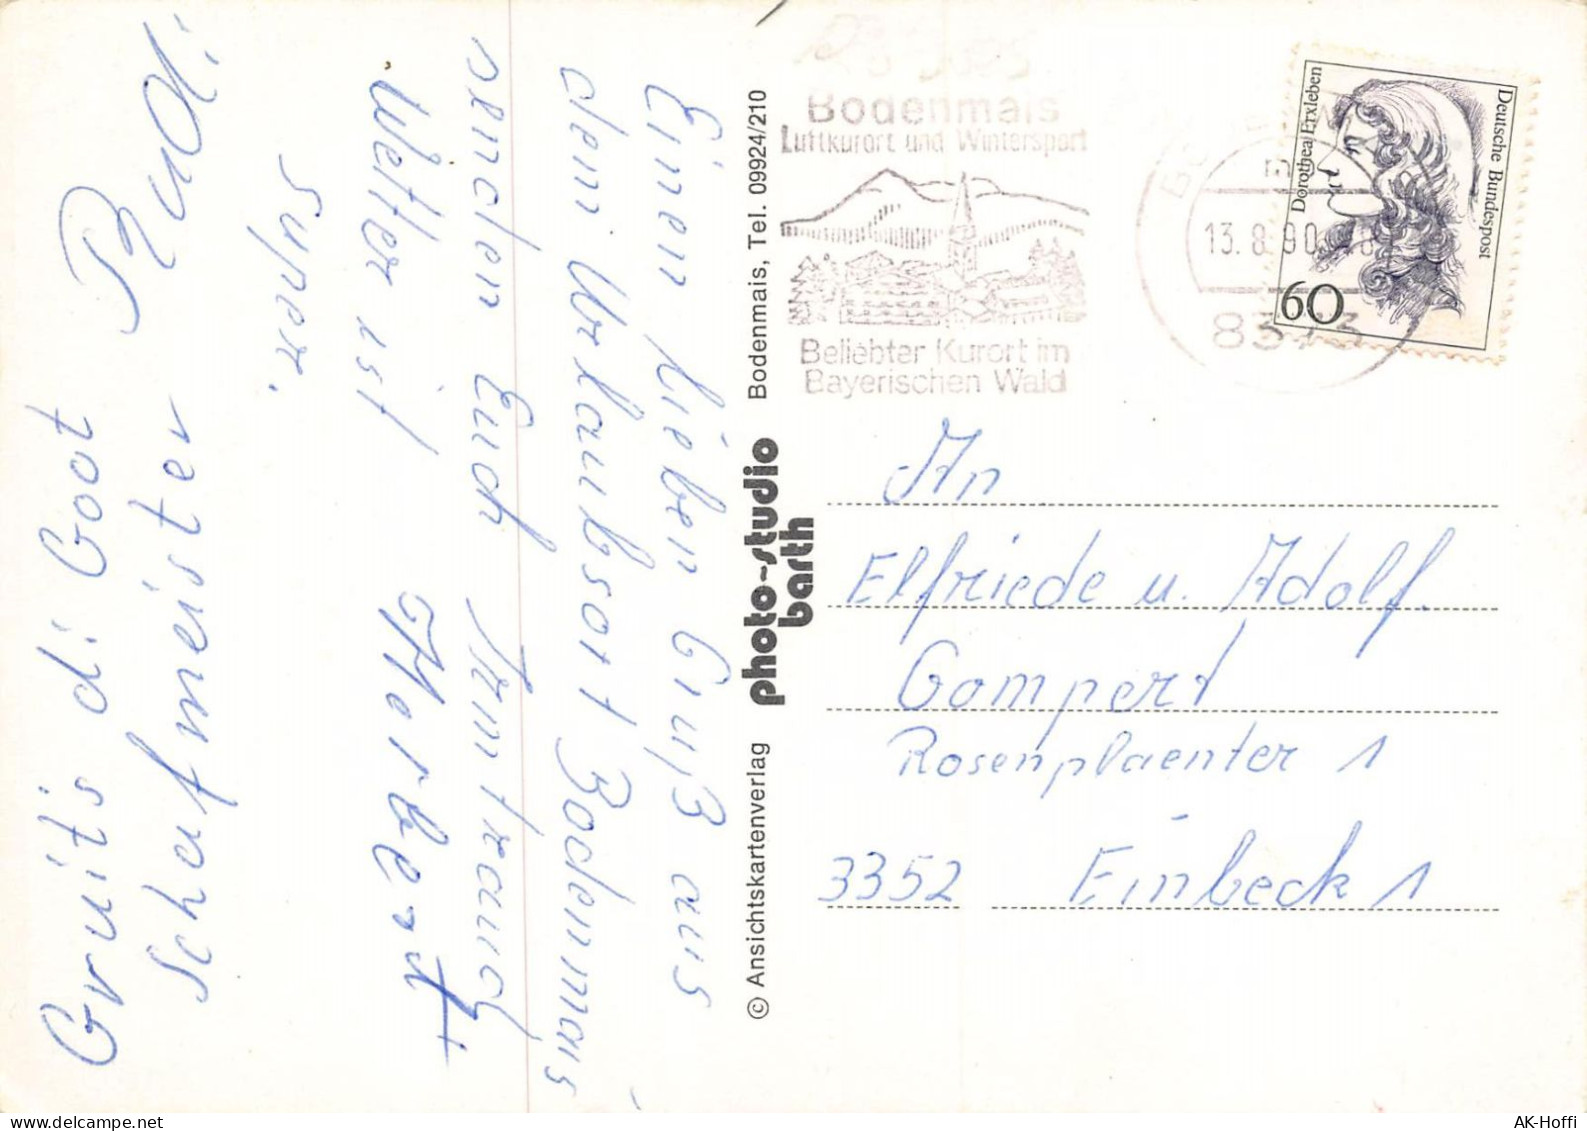 Einen lieben Gruß aus
dem Urlaubsort Bodenmais
senden Euch Irmtraud
Herbert
Wetter ist
super.
Rudi
Schafmeister
Gruits di Goot
© Ansichtskartenverlag
photo-studio
barth
Bodenmais, Tel. 09924/210
Bodenmais
Luftkurort und Wintersport
Beliebter Kurort im
Bayerischen Wald
13.8.90
8373
Deutsche Bundespost
Dorothea Erxleben
60
An
Elfriede u. Adolf.
Gompert
Rosenplaenter 1
3352 Einbeck 1
AK-Hoffi